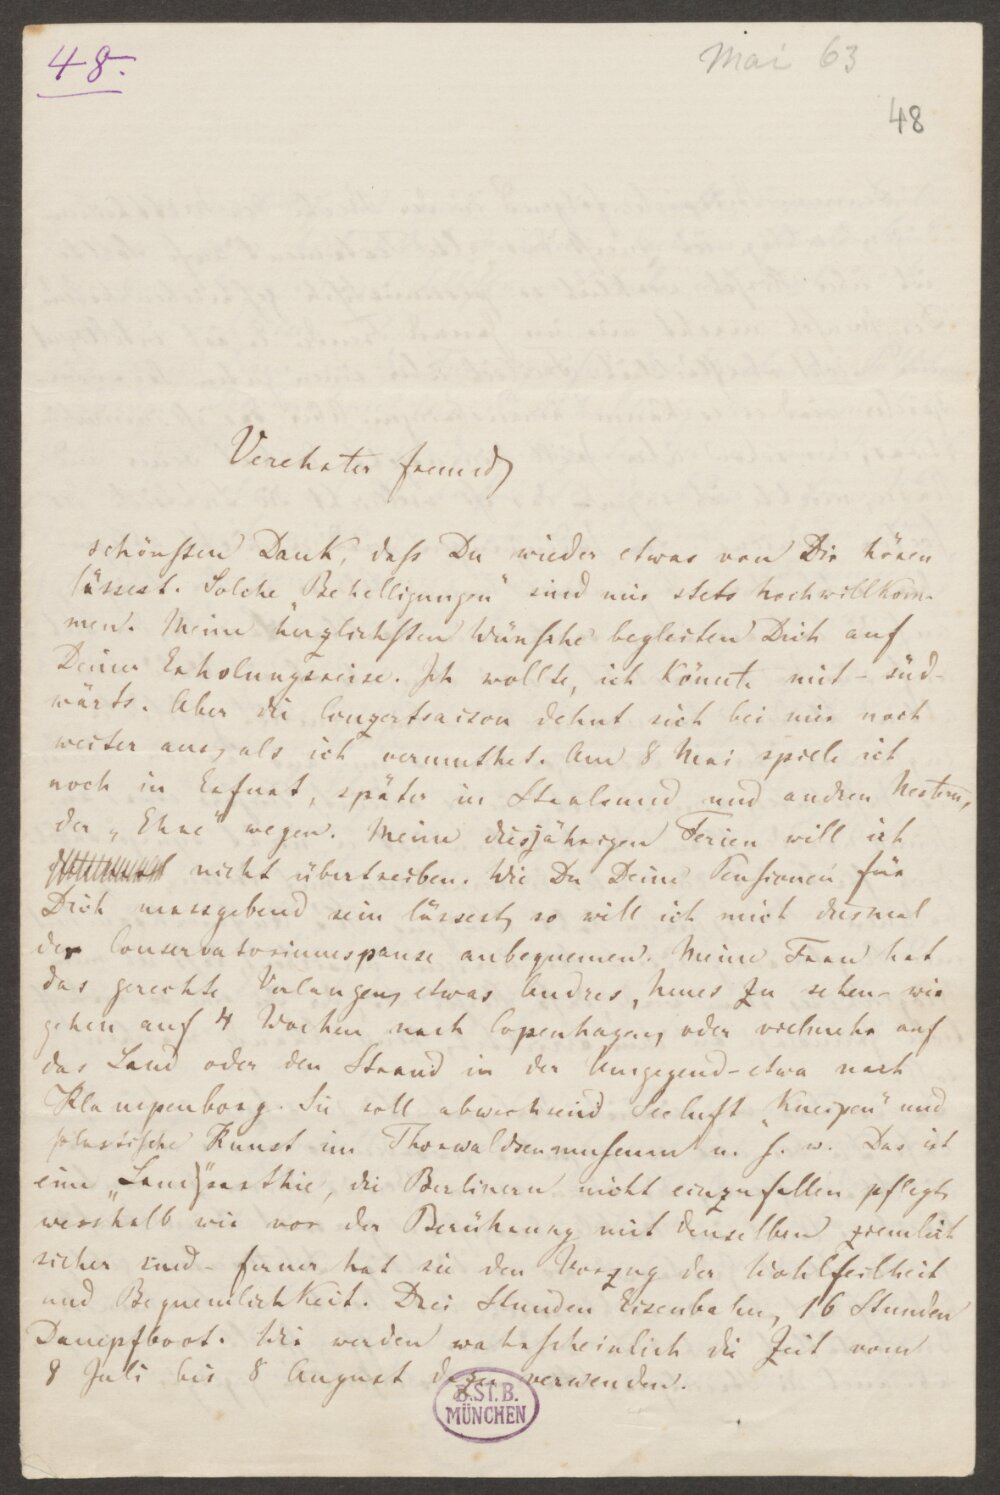 48.
Mai 63
48
Verehrter Freund,
schönsten Dank, daſs Du wieder etwas von Dir hören
lässest. Solche „Behelligungen" sind mir stets hochwillkom-
men. Meine herzlichsten Wünsche begleiten Dich auf
Deiner Erholungsreise. Ich wollte, ich könnte mit – süd-
wärts. Aber die Conzertsaison dehnt sich bei mir noch
weiter aus, als ich vermuthet. Am 8 Mai spiele ich
noch in Erfurt, später in Stralsund und andren Nestern,
der „Ehre" wegen. Meine diesjährigen Ferien will ich
nicht übertreiben. Wie Du Deine Pensionen für
Dich massgebend sein lässest, so will ich mich diesmal
der Conservatoriumspause anbequemen. Meine Frau hat
das gerechte Verlangen, etwas Andres, Neues zu sehen – wir
gehen auf 4 Wochen nach Copenhagen, oder vielmehr auf
das Land oder den Strand in der Umgegend – etwa nach
Klampenborg. Sie soll abwechselnd Seeluft „kneipen" und
plastische Kunst im Thorwaldsenmuseum u. s. w. Das ist
eine „Landparthie", die Berlinern nicht einzufallen pflegt,
wesshalb wir vor der Berührung mit denselben ziemlich
sicher sind – ferner hat sie den Vorzug der Wohlfeilheit
und Bequemlichkeit. Drei Stunden Eisenbahn, 16 Stunden
Dampfboot. Wir werden wahrscheinlich die Zeit vom
8 Juli bis 8 August dazu verwenden.
B.St.B.
MÜNCHEN